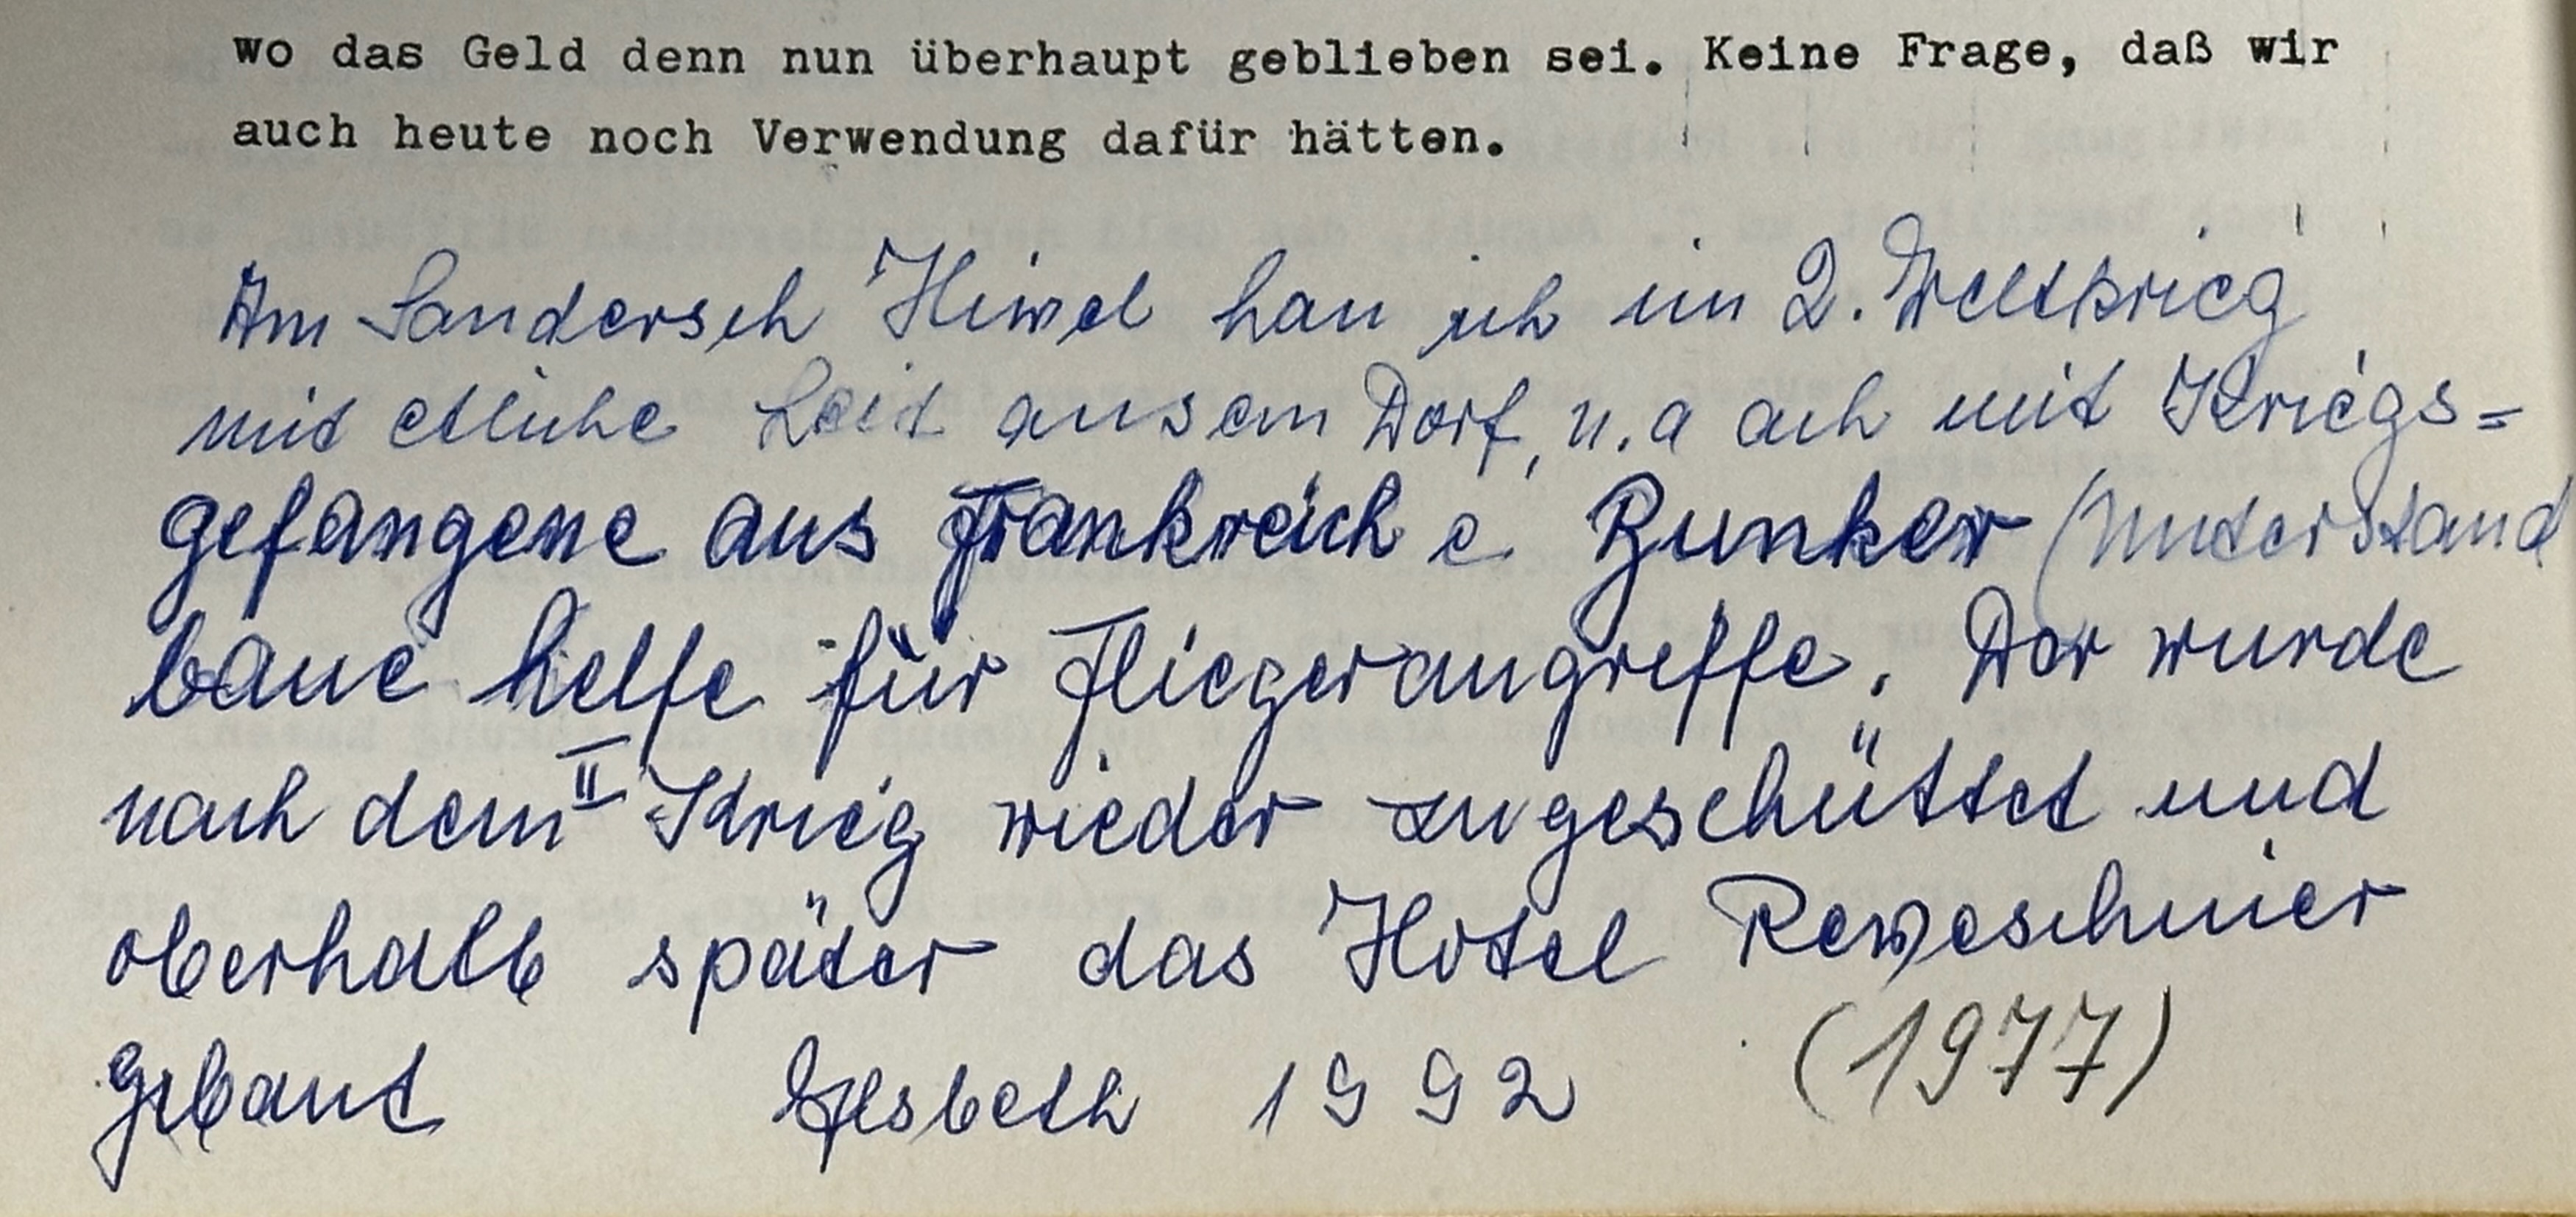 wo das Geld denn nun überhaupt geblieben sei. Keine Frage, daß wir
auch heute noch Verwendung dafür hätten.
Am Sandersch Hiwel han ich im 2. Weltkrieg
mit etliche Leit ausem Dorf, u. a ach mit Kriegs=
gefangene aus Frankreich e Bunker (Unterstand
baue helfe für Fliegerangriffe. Der wurde
nach dem II Krieg wieder zugeschüttet und
oberhalb später das Hotel Reweschnier
gebaut Elsbeth 1992 (1977)